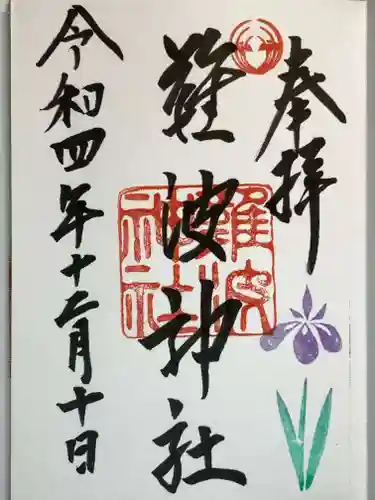 奉拝
難波神社
難波神社
令和四年十二月十日